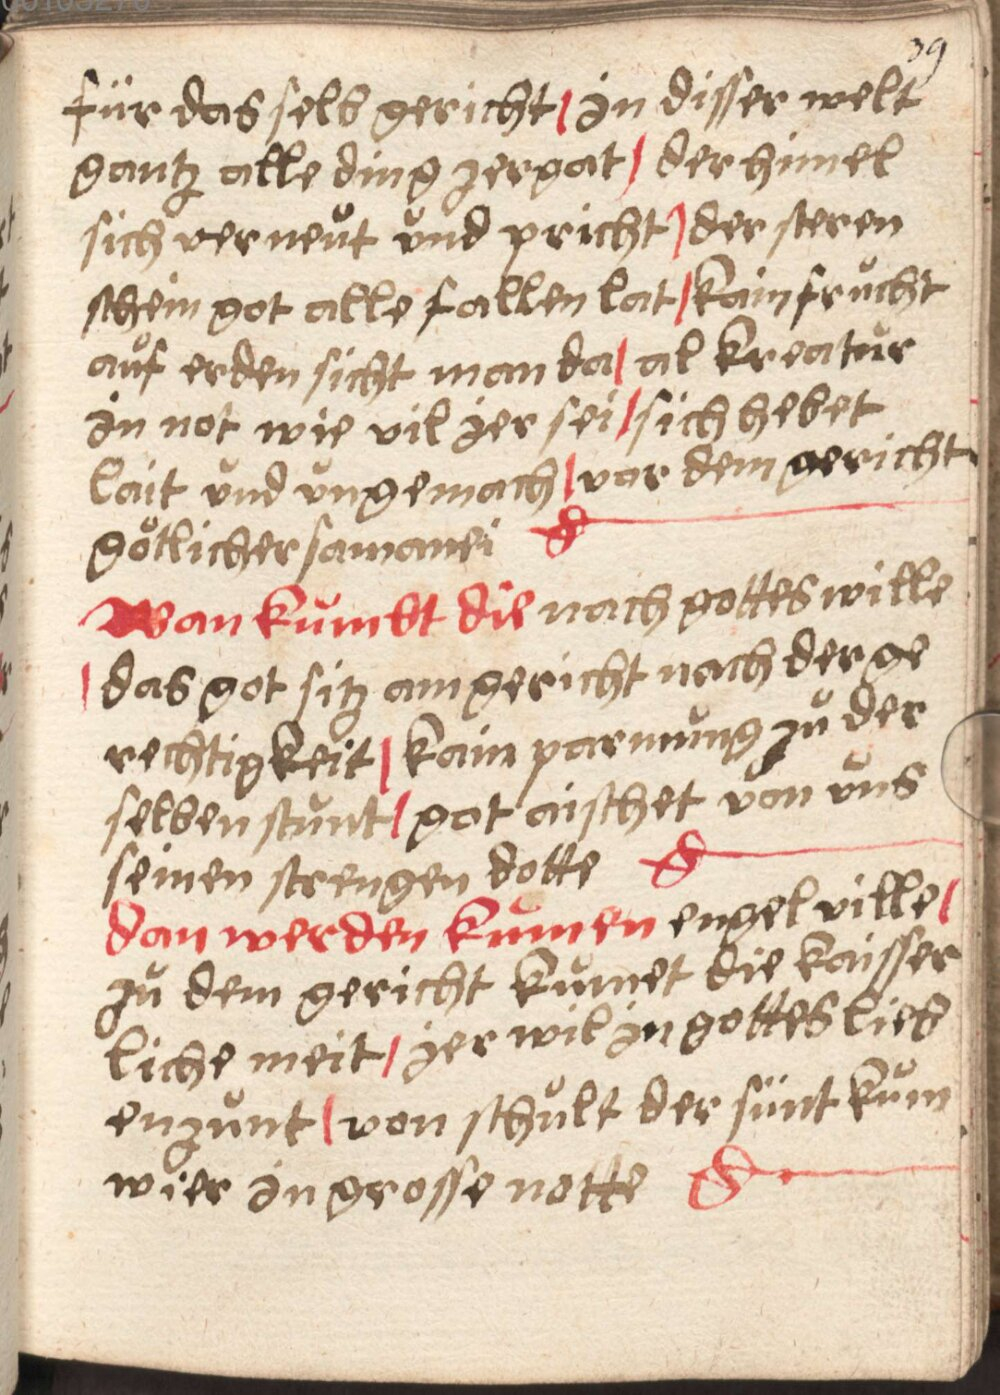 39
für das selb gericht / in disser welt
gantz alle ding zergat / der himel
sich verneut und pricht / der steren
schein got alle fallen lat / kain frucht
auf erden sicht man da / al kreatur
in not wie vil ier sei / sich hebet
lait und ungemach / vor dem gericht
götlicher samanei
Wan kumbt die nach gottes wille
/ das got sitz am gericht nach der ge
rechtigkeit / kain parmung zu der
selben stunt / got aischet von uns
seinen strengen dotte
dan werden kumen engel ville /
zu dem gericht kumet die kaisser
liche meit / ier wil in gottes lieb
enzunt / von schult der sünt kum
wier in grosse notte